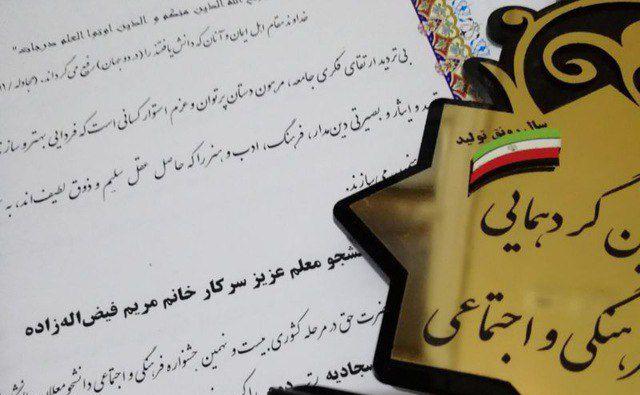 الله الذین منکم و الذین اوتوا العلم درجات"
خداوند مقام اهل ایمان و آنان که دانش یافتند را (در دو جهان) رفیع می گرداند. (مجادله/۱۱
بی تردید ارتقای فکری جامعه، مرهون دستان پرتوان و عزم استوار کسانی است که فردایی بهتر و
و ایثار و بصیرتی دین‌مدار، فرهنگ، ادب و هنر را که حاصل عقل سلیم و ذوق لطیف‌اند، به
می سازند.
معلم عزیز سرکار خانم مریم فیض‌اله‌زاده
حق در مرحله کشوری بیست و نهمین جشنواره فرهنگی و اجتماعی دانشجو معلمان
سجادیه رتبه
سال رونق تولید
گردهمایی
و اجتماعی